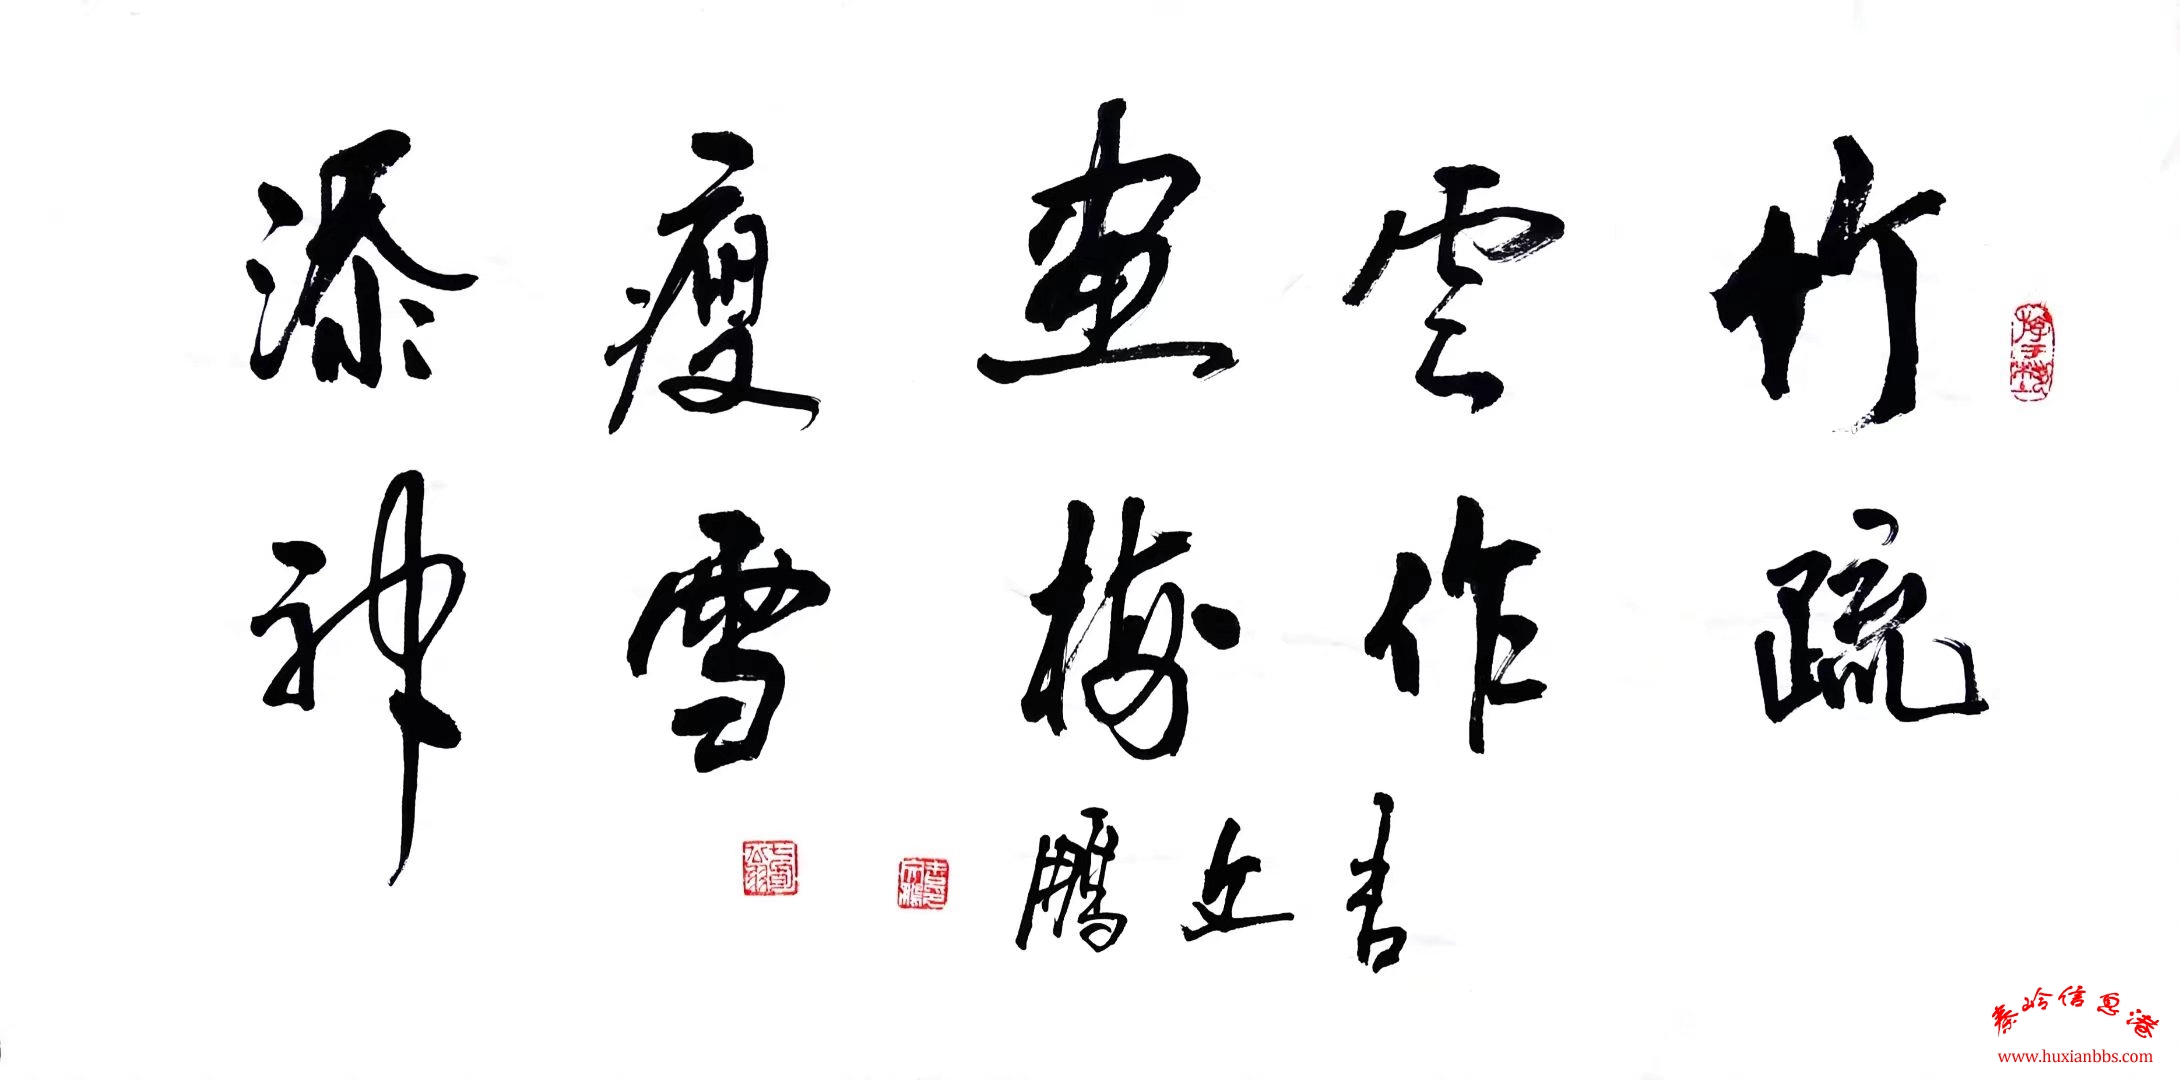 竹疏
雲作
畫梅
瘦雪
添神
文鵬
秦岭信息港
www.huxianbbs.com